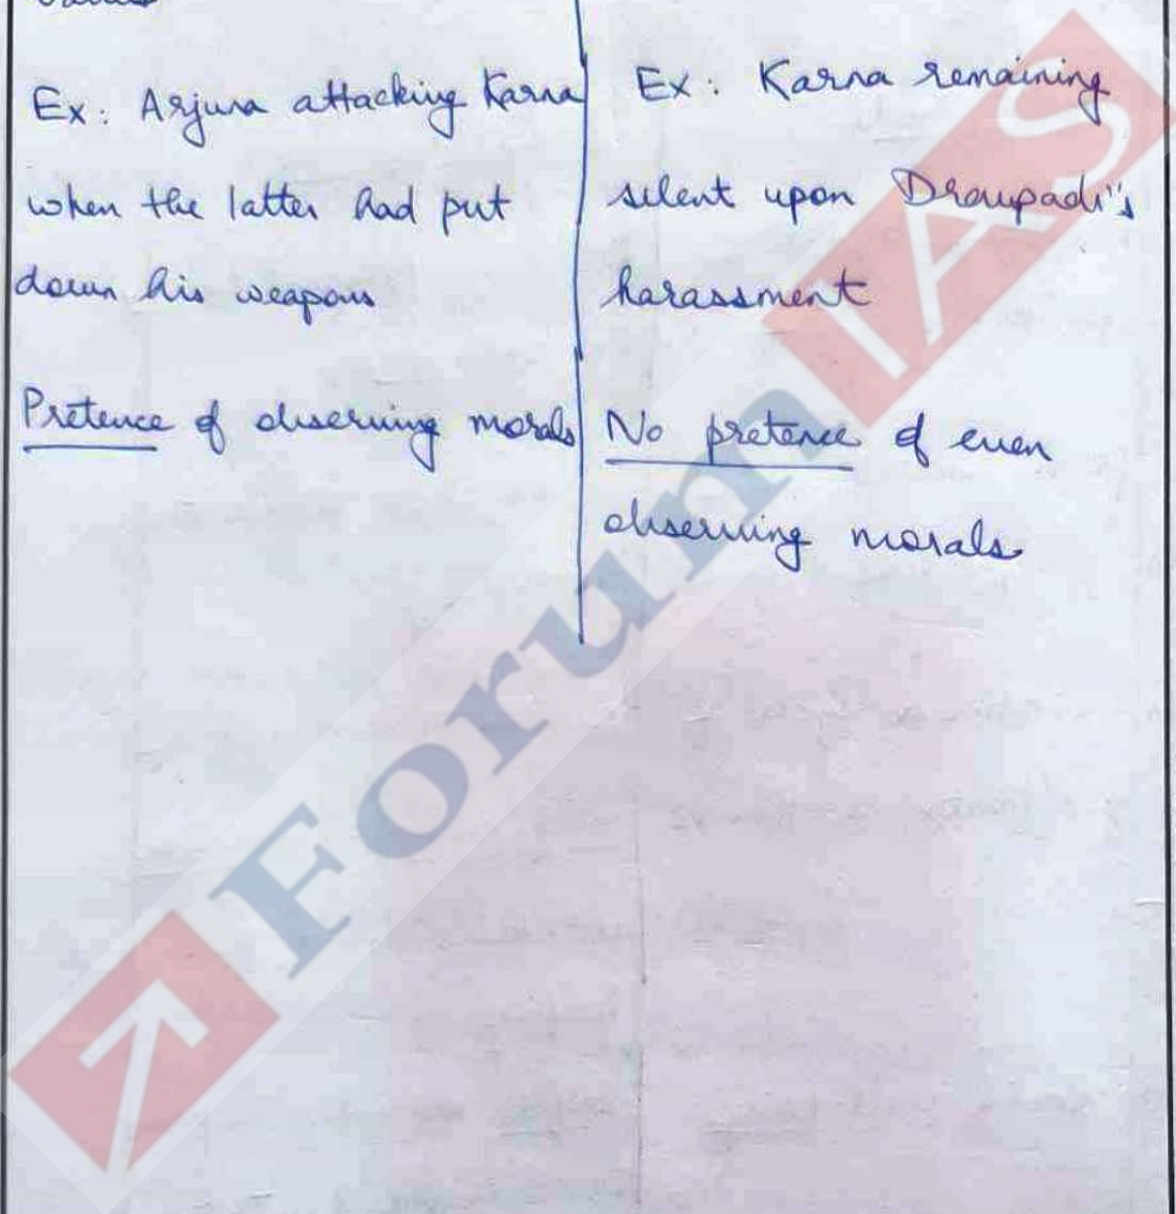 Ex: Arjuna attacking Karna
when the latter had put
down his weapons
Pretence of observing morals
Ex: Karna remaining
silent upon Draupadi's
harassment
No pretence of even
observing morals
Forum IAS